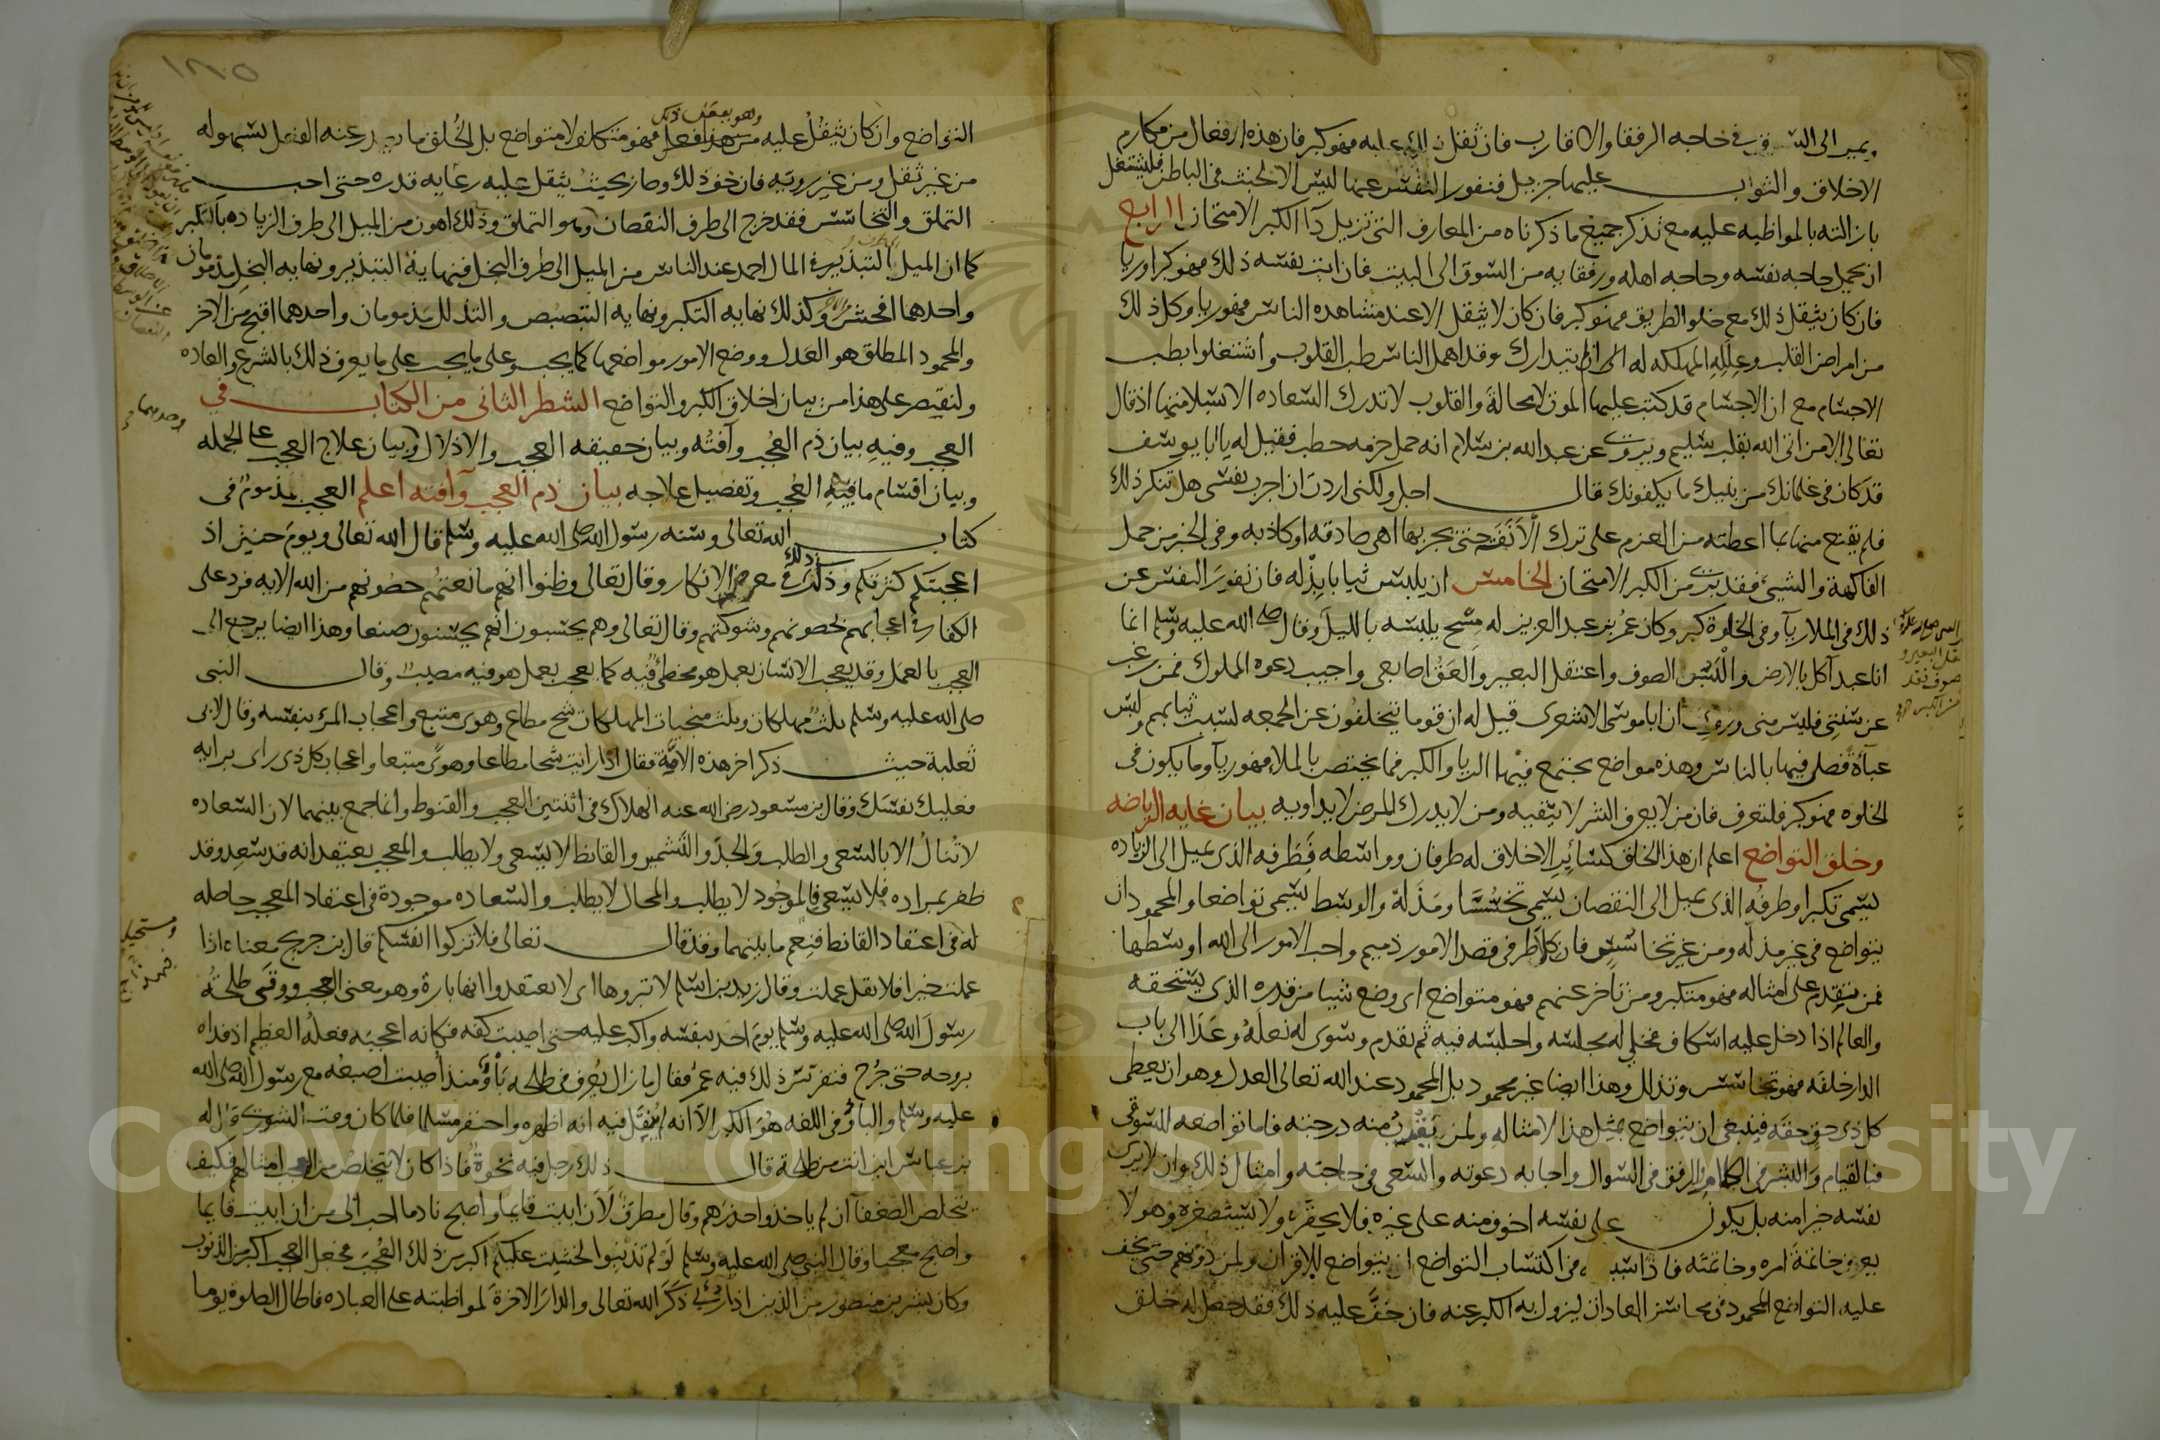 ويمر الى السوق في حاجه الرفقا والاقارب فان ثقل ذلك عليه فهو كبر فان هذه الافعال من مكارم
الاخلاق والثواب عليها جزيل فنفور النفس عنها ليس الا لخبث في الباطن فليشتغل
بازالته بالمواظبه عليه مع تذكر جميع ما ذكرناه من المعارف التي تزيل دآ الكبر الامتحان الرابع
ان يحمل حاجه نفسه وحاجه اهله ورفقايه من السوق الى البيت فان ابت نفسه ذلك فهو كبر او ريا
فان كان يثقل ذلك مع خلو الطريق فهو كبر فان كان لا يثقل الا عند مشاهده الناس فهو ريا وكل ذلك
من امراض القلب وعلله المهلكه له ان لم يتدارك وقد اهمل الناس طب القلوب واشتغلوا بطب
الاجسام مع ان الاجسام قد كتب عليها الموت لا محالة والقلوب لا تدرك السعاده الا بسلامتها اذ قال
تعالى الا من اتى الله بقلب سليم ويروى عن عبد الله بن سلام انه حمل حزمه حطب فقيل له يا ابا يوسف
قد كان في غلمانك من بنيك ما يكفونك قال اجل ولكني اردت ان اجرب نفسي هل تنكر ذلك
فلم يقنع منها بما اعطته من العزم على ترك الانفه حتى يجربها اهي صادقه او كاذبه وفي الخبر من حمل
الفاكهة والشيء فقد برئ من الكبر الامتحان الخامس ان يلبس ثيابا بذله فان نفور النفس عن
ذلك في الملا ريآ وفي الخلوة كبر وكان عمر بن عبد العزيز له مسح يلبسه بالليل وقال صلى الله عليه وسلم انما
انا عبد آكل بالارض والبس الصوف واعتقل البعير والعق اصابعي واجيب دعوه المملوك فمن رغب
عن سنتي فليس مني وروي ان ابا موسى الاشعري قيل له ان قوما يتخلفون عن الجمعه لسبب ثيابهم ولبس
عبآة فصلى فيها بالناس وهذه مواضع يجتمع فيها الريا والكبر فما يختص بالملاء فهو ريآ وما يكون في
الخلوه فهو كبر فلتعرف فان من لا يعرف الشر لا يتقيه ومن لا يدرك المرض لا يداويه بيان غايه الرياضه
وخلق التواضع اعلم ان هذا الخلق كسائر الاخلاق له طرفان وواسطه فطرفه الذي يميل الى الزياده
يسمى تكبرا وطرفه الذي يميل الى النقصان يسمى تخسسا ومذلة والوسط يسمى تواضعا والمحمود ان
يتواضع في غير مذله ومن غير تخاسس فان كلا طرفي قصد الامور ذميم واحب الامور الى الله اوسطها
فمن يتقدم على امثاله فهو متكبر ومن تأخر عنهم فهو متواضع اي وضع شيا من قدره الذي يستحقه
والعالم اذا دخل عليه اسكاف فخلى له مجلسه واجلسه فيه ثم تقدم وسوى له نعله وغدا الى باب
الدار خلفه فهو تخاسس وتذلل وهذا ايضا غير محمود بل المحمود عند الله تعالى العدل وهو ان يعطي
كل ذي حق حقه فينبغي ان يتواضع بمثل هذا لامثاله ولمن يقرب منه درجته فاما تواضعه للسوقي
فبالقيام والبشر في الكلام والرفق في السوال واجابه دعوته والسعي في حاجته وامثال ذلك وان لا يرى
نفسه خيرا منه بل يكون على نفسه اخوف منه على غيره فلا يحقره ولا يستصغره وهو لا
يعرف خاتمة امره وخاتمته فاذا سبيله في اكتساب التواضع ان يتواضع للاقران ولمن دونهم حتى يخف
عليه التواضع المحمود في محاسن العادات ليزول به الكبر عنه فان خف عليه ذلك فقد حصل له خلق
التواضع وان كان يثقل عليه وهو يفعل ذلك فهو متكلف لا متواضع بل الخلق ما يصدر عنه الفعل بسهوله
من غير ثقل ومن غير رويه فان خف ذلك وصار بحيث يثقل عليه رعايه قدره حتى احب
التملق والتخاسس فقد خرج الى طرف النقصان وهو التملق وذلك اهون من الميل الى طرف الزياده بالتكبر
كما ان الميل الى التبذير في المال احمد عند الناس من الميل الى طرف البخل فنهاية التبذير ونهايه البخل مذمومان
واحدهما افحش وكذلك نهايه التكبر ونهايه التبصبص والتذلل مذمومان واحدهما اقبح من الاخر
والمحمود المطلق هو العدل ووضع الامور مواضعها كما يجب وعلى ما يجب على ما يعرف ذلك بالشرع والعاده
ولنقتصر على هذا من بيان اخلاق الكبر والتواضع الشطر الثاني من الكتاب في
العجب وفيه بيان ذم العجب وآفته وبيان حقيقه العجب والادلال وبيان علاج العجب على الجمله
وبيان اقسام ما فيه العجب وتفصيل علاجه بيان ذم العجب وآفته اعلم العجب مذموم في
كتاب الله تعالى وسنه رسول الله صلى الله عليه وسلم قال الله تعالى ويوم حنين اذ
اعجبتكم كثرتكم وذكر ذلك في معرض الانكار وقال تعالى وظنوا انهم مانعتهم حصونهم من الله الايه فرد على
الكفار في اعجابهم بحصونهم وشوكتهم وقال تعالى وهم يحسبون انهم يحسنون صنعا وهذا ايضا يرجع الى
العجب بالعمل وقد يعجب الانسان بعمل هو مخطئ فيه كما يعجب بعمل هو فيه مصيب وقال النبي
صلى الله عليه وسلم ثلث مهلكات وثلث منجيات المهلكات شح مطاع وهوى متبع واعجاب المرء بنفسه وقال لابي
ثعلبة حيث ذكر اخر هذه الامة فقال اذا رايت شحا مطاعا وهوى متبعا واعجاب كل ذي راى برايه
فعليك نفسك وقال بن مسعود رضي الله عنه الهلاك في اثنتين العجب والقنوط وانما جمع بينهما لان السعاده
لا تنال الا بالسعي والطلب والجد والتشمير والقانط لا يسعى ولا يطلب والمعجب يعتقد انه قد سعد وقد
ظفر بمراده فلا يسعى فالموجود لا يطلب والمحال لا يطلب والسعاده موجودة في اعتقاد المعجب حاصله
له في اعتقاد القانط فمن هاهنا جمع ما بينهما وقد قال تعالى فلا تزكوا انفسكم قال بن جريج معناه اذا
عملت خيرا فلا تقل عملت وقال زيد بن اسلم لا تبروها اي لا تعتقدوا انها بارة وهو معنى العجب ووقى طلحة
رسول الله صلى الله عليه وسلم يوم احد بنفسه واكب عليه حتى اصيبت كفه فكانه اعجبه فعله العظيم اذ فداه
بروحه حتى جرح فتفرس ذلك فيه عمر فقال ما زال يعرف في طلحه بأو منذ اصيبت اصبعه مع رسول الله صلى الله
عليه وسلم والبأو في اللغه هو الكبر الا انه لم ينقل فيه انه اظهره واحتقر مسلما فلما كان وقت الشورى قال له
بن عباس اين انت من طلحة قال ذلك رجل فيه نخوة فاذا كان لا يتخلص من العجب امثالهم فكيف
يتخلص الضعفآ ان لم ياخذوا حذرهم وقال مطرف لان ابيت نايما واصبح نادما احب الي من ان ابيت قايما
واصبح معجبا وقال النبي صلى الله عليه وسلم لو لم تذنبوا لخشيت عليكم اكبر من ذلك العجب فجعل العجب اكبر من الذنوب
وكان بشر بن منصور من الذين اذا رءوا ذكر الله تعالى والدار الاخرة لمواظبته على العباده فاطال الصلوة يوما
Copyright © King Saud University